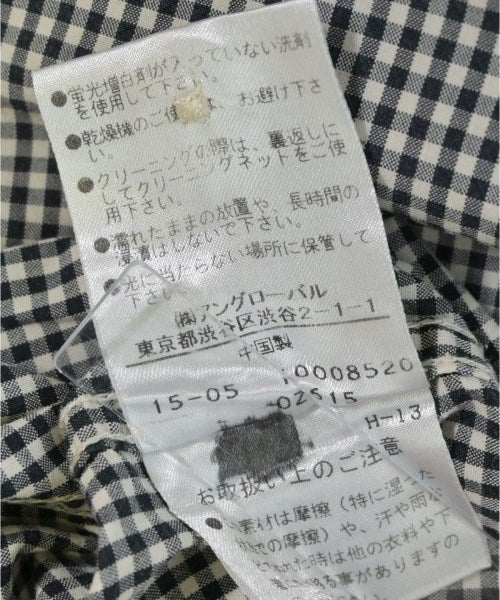 ●蛍光増白剤が入っていない洗剤
を使用して下さい。
●乾燥機のご使 は、お避け下さ
い。
●クリーニングの際は、裏返しに
してクリーニングネットをご使
用下さい。
●濡れたままの放置や、長時間の
浸漬はしないで下さい。
●光に当たらない場所に保管して
下さい
㈱アングローバル
東京都渋谷区渋谷2-1-1
中国製
15-05 0008520
02615
H-13
お取扱い上のご注意
● 素材は摩擦(特に湿った
での摩擦)や、汗や雨
れた時は他の衣料や下
る事がありますの